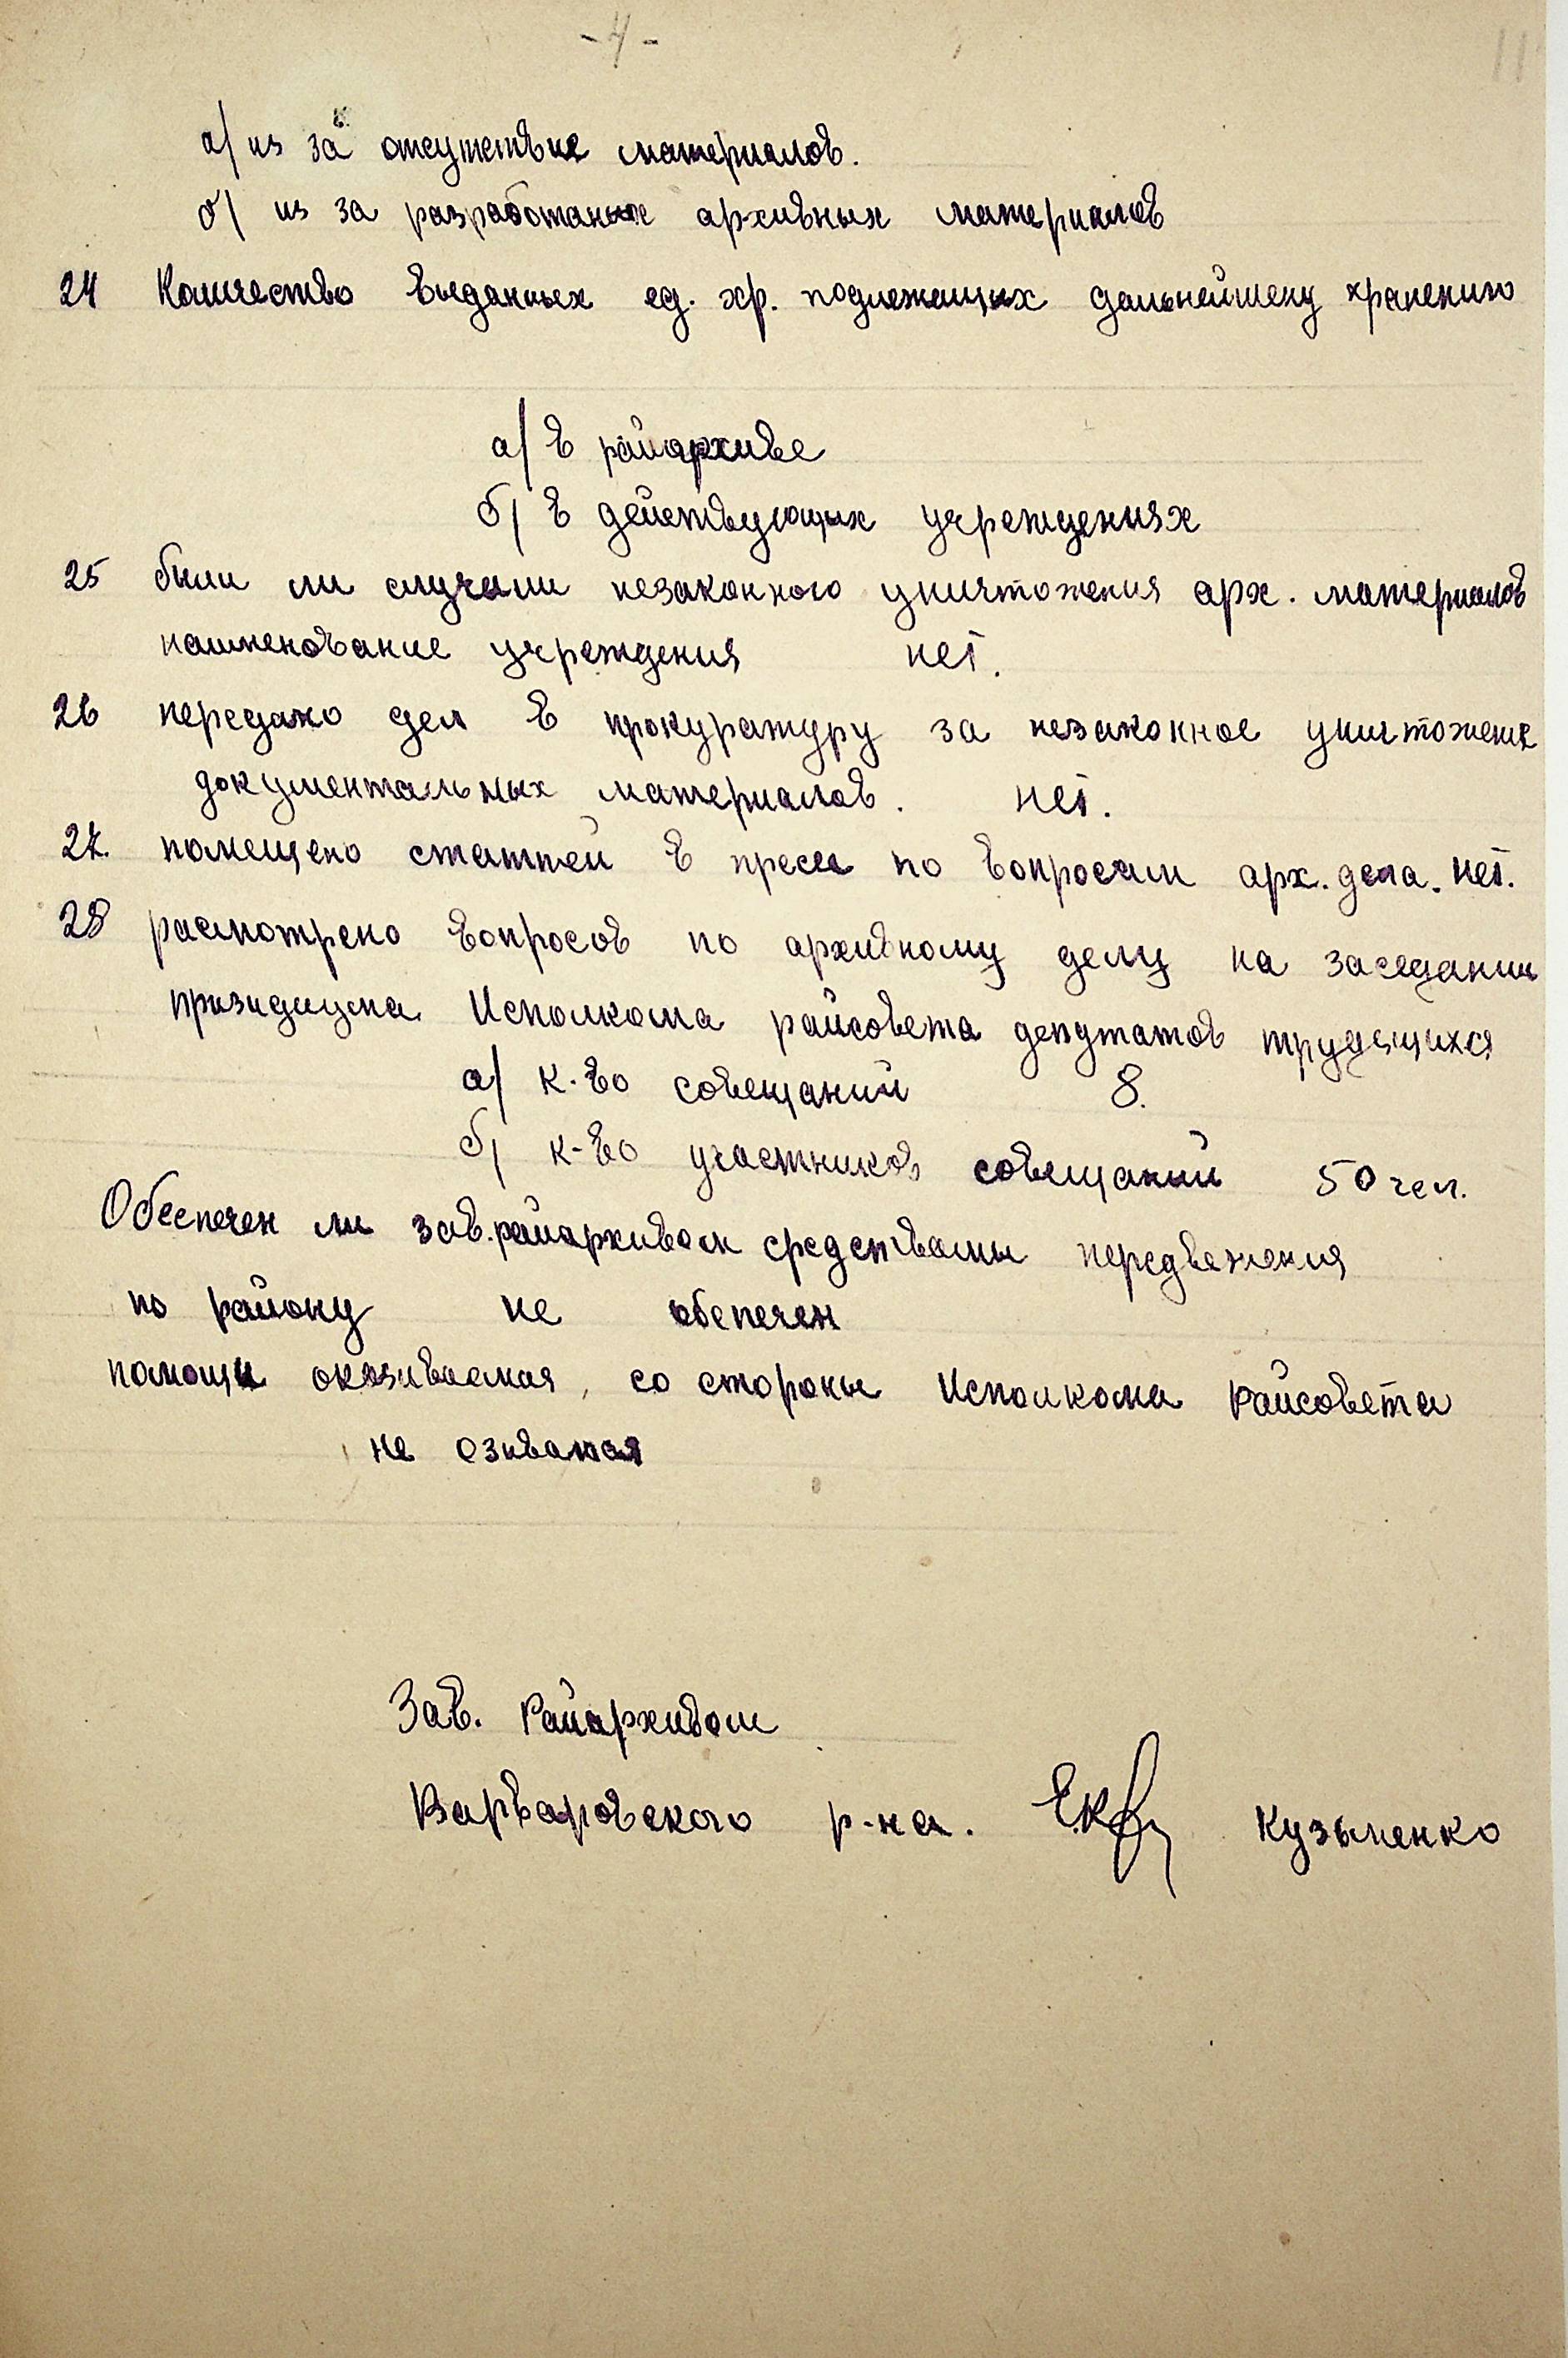 -4-
11
а/ из за отсутствие материалов.
б/ из за разработаных архивных материалов
24 Количество выданных ед. хр. подлежащих дальнейшему хранению
а/ в райархиве
б/ в действующих учреждениях
25 были ли случаи незаконного уничтожения арх. материалов
наименование учреждения нет.
26 передано дел в прокуратуру за незаконное уничтожение
документальных материалов. нет.
27. помещено статтей в пресе по вопросам арх. дела. нет.
28 расмотрено вопросов по архивному делу на заседании
призидиума Исполкома райсовета депутатов трудящихся
а/ к-во совещаний 8.
б/ к-во участников совещаний 50 чел.
Обеспечен ли зав. райархивом средствамы передвежения
по району не обепечен
помощи оказиваемая, со стороны Исполкома Райсовета
не
Зав. Райархивом
Варваровского р-на. Кузьменко